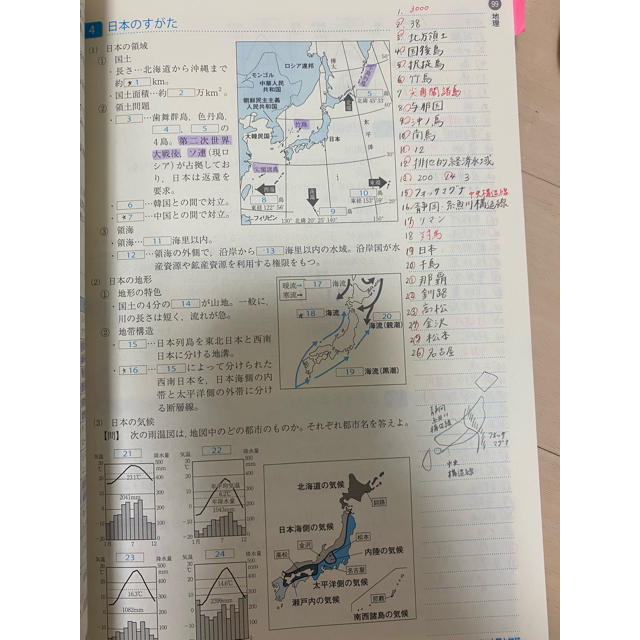 99
地理
4 日本のすがた
(1) 日本の領域
① 国土
・長さ…北海道から沖縄まで
約 *1 km。
・国土面積…約 2 万km²。
② 領土問題
・ 3 …歯舞群島、色丹島、
4 、 5 の
4島。第二次世界
大戦後、ソ連(現ロ
シア)が占拠してお
り、日本は返還を
要求。
・ 6 …韓国との間で対立。
・ *7 …中国との間で対立。
③ 領海
・領海… 11 海里以内。
・ 12 …領海の外側で、沿岸から 13 海里以内の水域。沿岸国が水
産資源や鉱産資源を利用する権限をもつ。
ロシア連邦
樺太
モンゴル
中華人民
共和国
朝鮮民主主義
人民共和国
大韓民国
竹島
日本
太平洋
5 島
北緯45°33′
尖閣諸島
西端
東端
8 島
東経122°56′
10 島
東経153°59′
フィリピン
9 島
北緯20°25′
140°
(2) 日本の地形
① 地形の特色
・国土の4分の 14 が山地。一般に、
川の長さは短く、流れが急。
② 地帯構造
・ 15 …日本列島を東北日本と西南
日本に分ける地溝。
・ *16 … 15 によって分けられた
西南日本を、日本海側の内
帯と太平洋側の外帯に分け
る断層線。
暖流→
寒流→
17 海流
18 海流
20
海流(親潮)
19 海流(黒潮)
(3) 日本の気候
【問】 次の雨温図は、地図中のどの都市のものか。それぞれ都市名を答えよ。
気温 21 降水量
23.1℃
2041mm
1 7 12
気温 22 降水量
年平均気温
6.2℃
年降水量
1043mm
1 7 12
気温 23 降水量
16.3℃
1082mm
気温 24 降水量
14.6℃
2399mm
北海道の気候
釧路
日本海側の気候
金沢
松本
高松
内陸の気候
名古屋
太平洋側の気候
瀬戸内の気候
那覇
南西諸島の気候
1. 3000
2 38
3 北方領土
4 国後島
5 択捉島
6 竹島
7 尖閣諸島
8 与那国
9 沖ノ島
10 南鳥
11 12
12 排他的経済水域
13 200 14 3
15 フォッサマグナ 中央構造線
16. 静岡・糸魚川構造線
17 リマン
18 対馬
19 日本
20 千島
21 那覇
22 釧路
23 高松
24 金沢
25 松本
26 名古屋
構造線
フォッサ
マグナ
中央
構造線